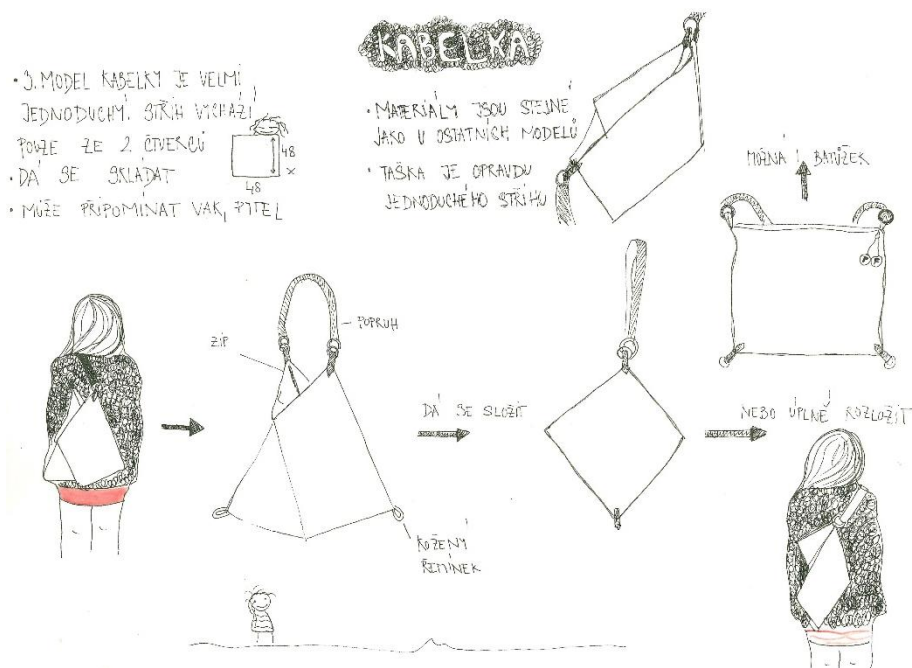 KABELKA
• 3. MODEL KABELKY JE VELMI
JEDNODUCHÝ. STŘIH VYCHÁZÍ
POUZE ZE 2. ČTVERCŮ
• DÁ SE SKLÁDAT
• MŮŽE PŘIPOMÍNAT VAK, PYTEL
48
×
48
• MATERIÁLY JSOU STEJNÉ
JAKO U OSTATNÍCH MODELŮ
• TAŠKA JE OPRAVDU
JEDNODUCHÉHO STŘIHU
MOŽNÁ I BATŮŽEK
ZIP
POPRUH
DÁ SE SLOŽIT
NEBO ÚPLNĚ ROZLOŽIT
KOŽENÝ
ŘEMÍNEK